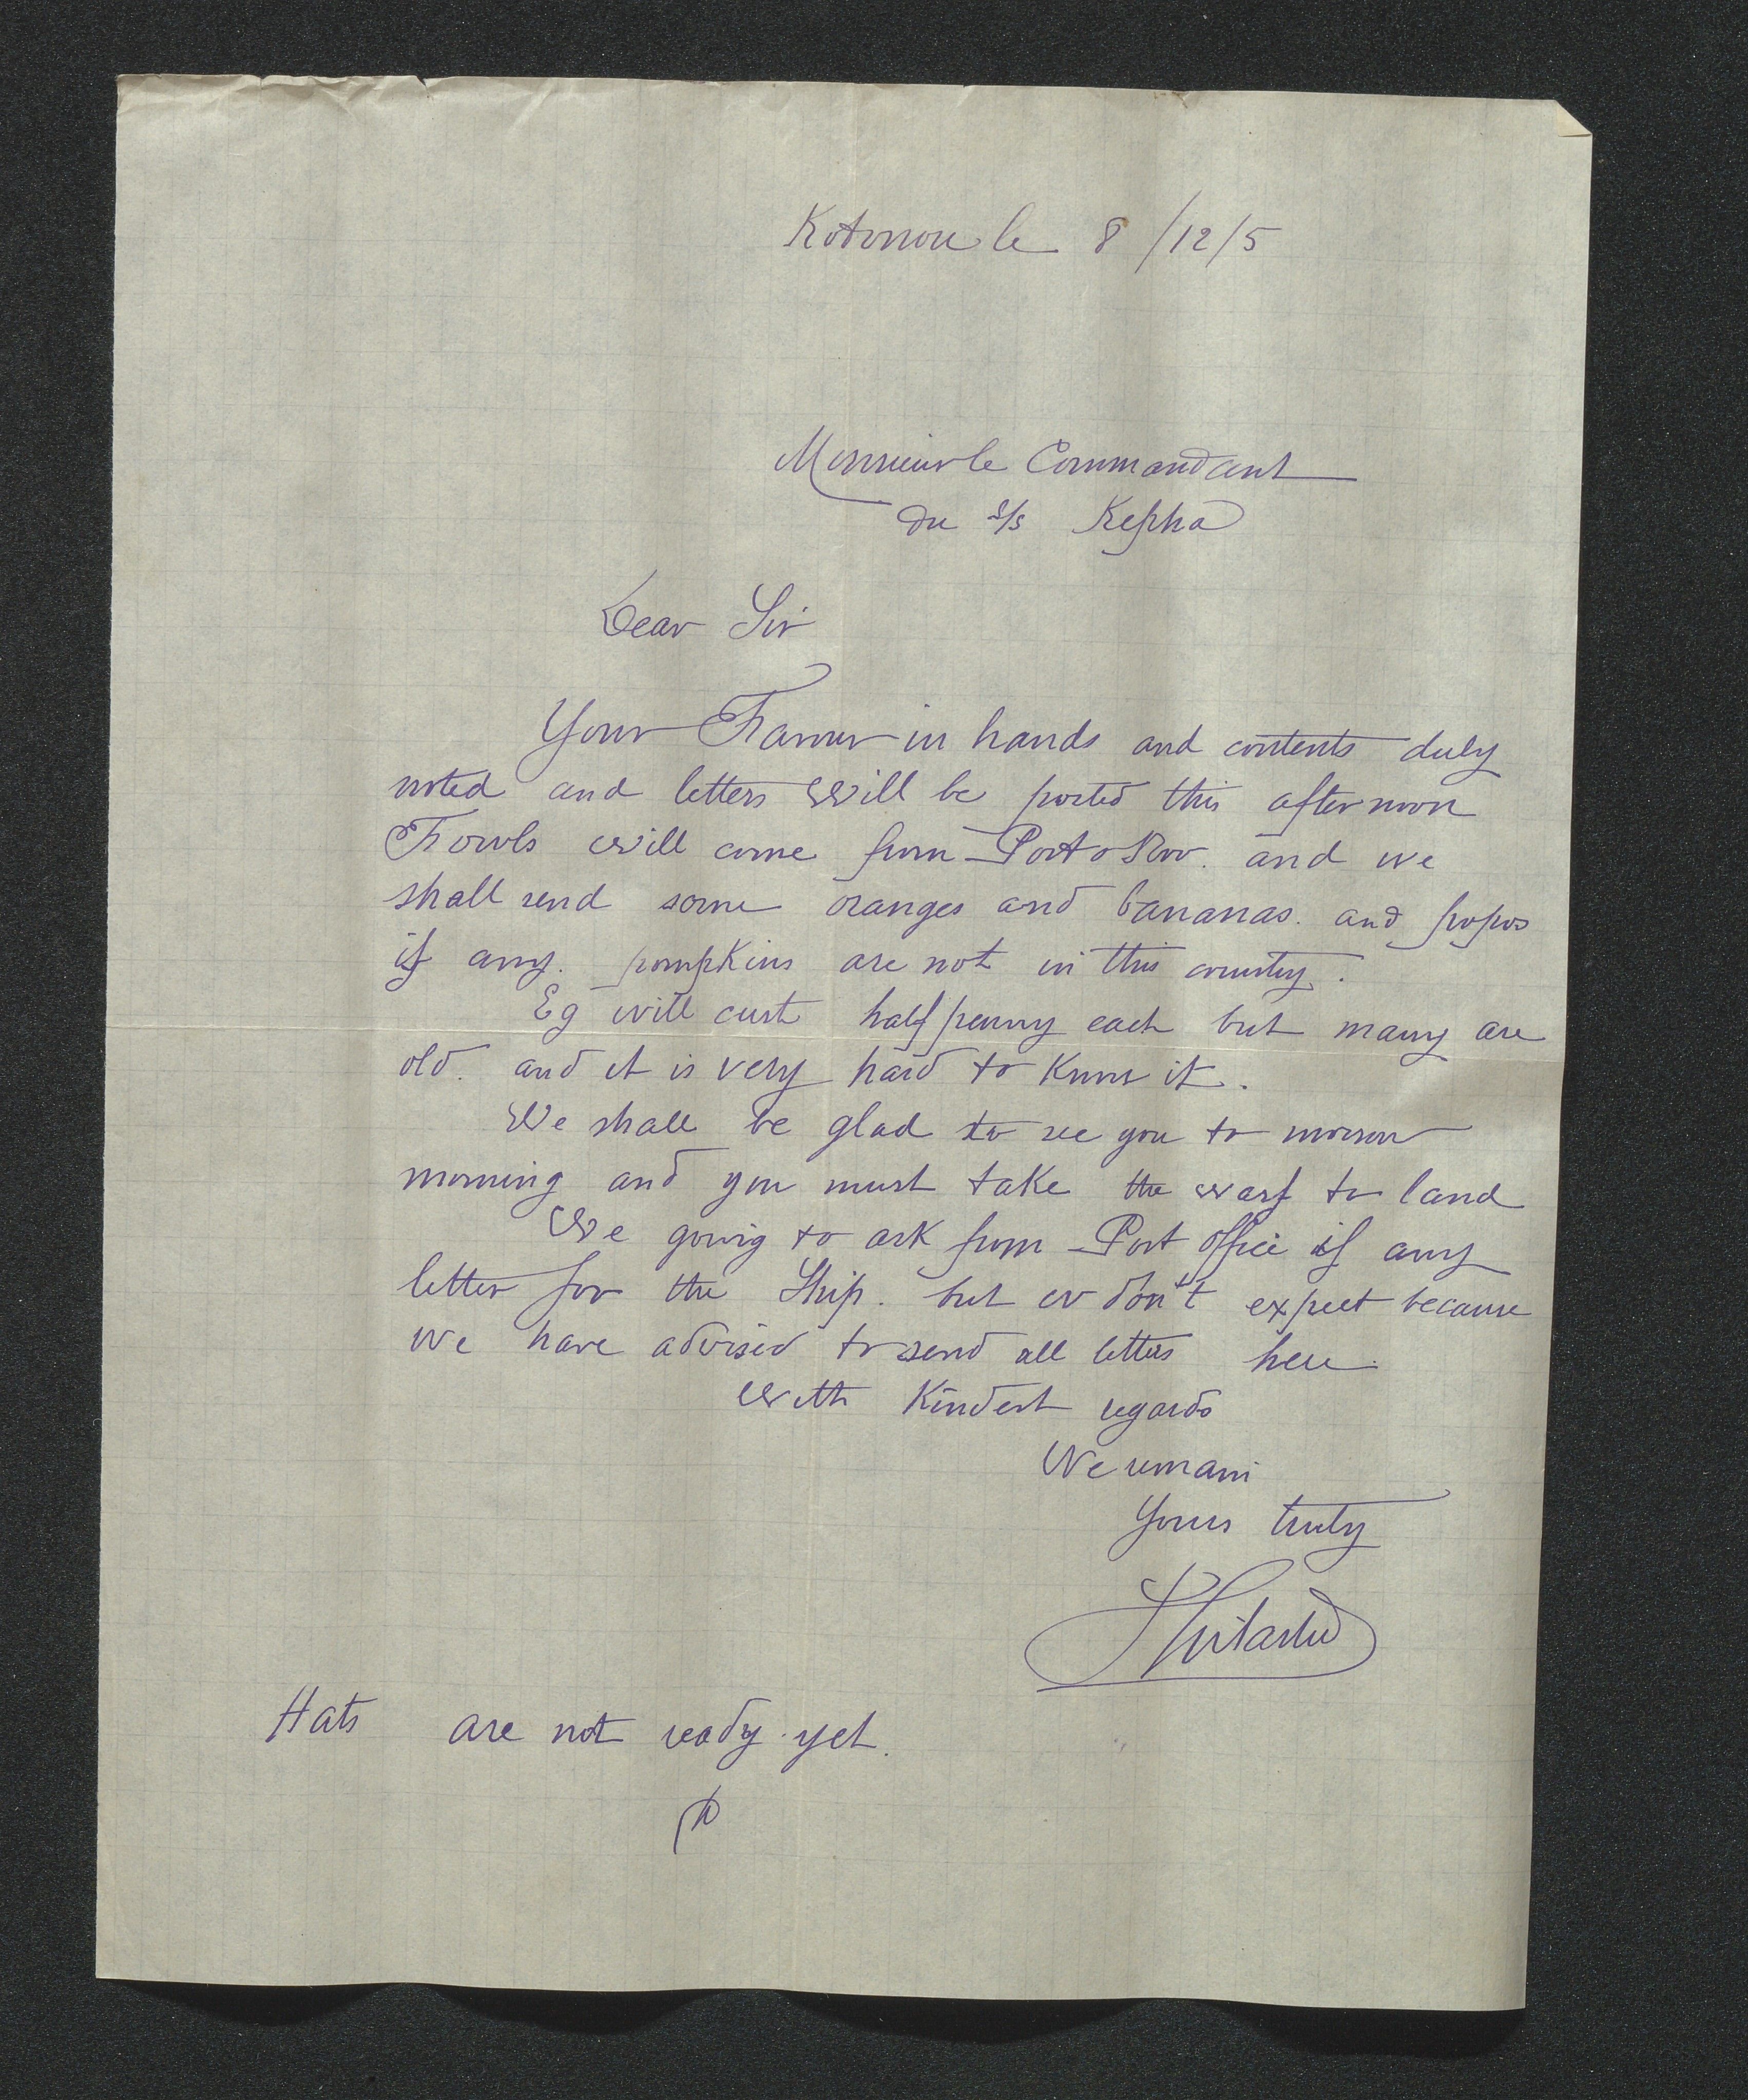 Kotonou le 8/12/5
Monsieur le Commandant
du s/s Kepha
Dear Sir
Your Favour in hands and contents duly
noted and letters will be posted this afternoon
Fowls will come from Porto Nov. and we
shall send some oranges and bananas. and popos
if any. pompkins are not in this country.
Eg will cust half penny each but many are
old. and it is very hard to know it.
We shall be glad to see you to morrow
morning and you must take the warf to land
We going to ask from Post office if any
letter for the Ship. but don't expect because
we have advised to send all letters here.
With Kindest regards
We remain
Yours truly
Hats are not ready yet.